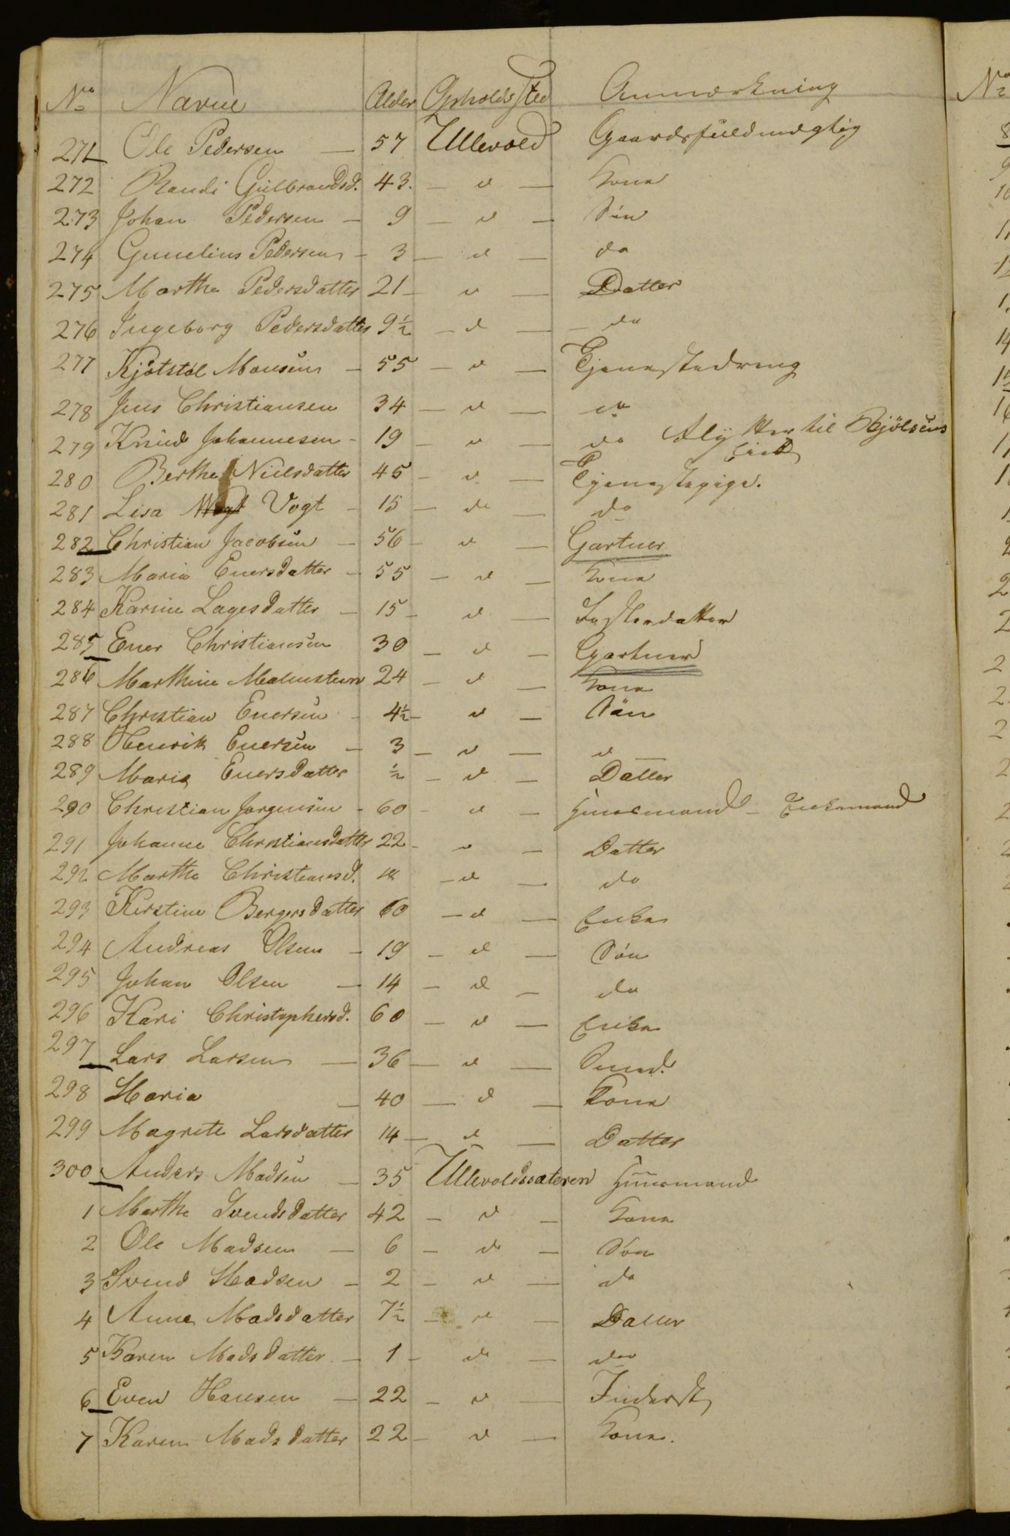 No Navne Alder Opholds Sted Anmærkning
271 Ole Pedersen — 57 Ullevold Gaardsfuldmægtig
272 Randi Gulbrandsd. 43. — d — Kone
273 Johan Pedersen — 9 — d — Søn
274 Gunelius Pedersen — 3 — d — do
275 Marthe Pedersdatter 21 — d — Datter
276 Ingeborg Pedersdatter 9½ — d — do
277 Kjøtstøl Monsen — 55 — d — Tjenestedreng
278 Jens Christiansen 34 — d — do
279 Knud Johannesen — 19 — d — do flytter til Bjølsens
280 Berthe Nielsdatter 45 — d — Tjenestepige.
281 Lisa Vogt — 15 — do — do
282 Christian Jacobsen — 56 — d — Gartner
283 Maria Enersdatter — 55 — d — Kone
284 Karine Lagesdatter — 15 — d — Fosterdatter
285 Ener Christiansen 30 — d — Gartner
286 Marthine Malmsteen 24 — d — Kone
287 Christian Enersen — 4½ — d — Søn
288 Henrik Enersen — 3 — d — d
289 Maria Enersdatter ½ — d — Datter
290 Christian Jørgensen — 60 — d — Huusmand — Enkemand
291 Johanne Christiansdatter 22 — d — Datter
292 Marthe Christiansd. — d — do
293 Kirstine Bergersdatter 60 — d — Enke
294 Andreas Olsen — 19 — d — Søn
295 Johan Olsen — 14 — d — do
296 Kari Christophersd. 60 — d — Enke
297 Lars Larsen — 36 — d —
298 Maria — 40 — d — Kone
299 Magrete Larsdatter 14 — d — Datter
300 Anders Madsen — 35 Ullevoldssæteren Huusmand
1 Marthe Svendsdatter 42 — d — Kone
2 Ole Madsen — 6 — do — Søn
3 Svend Madsen — 2 — d — do
4 Anne Madsdatter 7½ — d — Datter
5 Karen Madsdatter — 1 — do — do
6 Even Hansen — 22 — d — Inderst
7 Karen Madsdatter 22 — d — Kone.